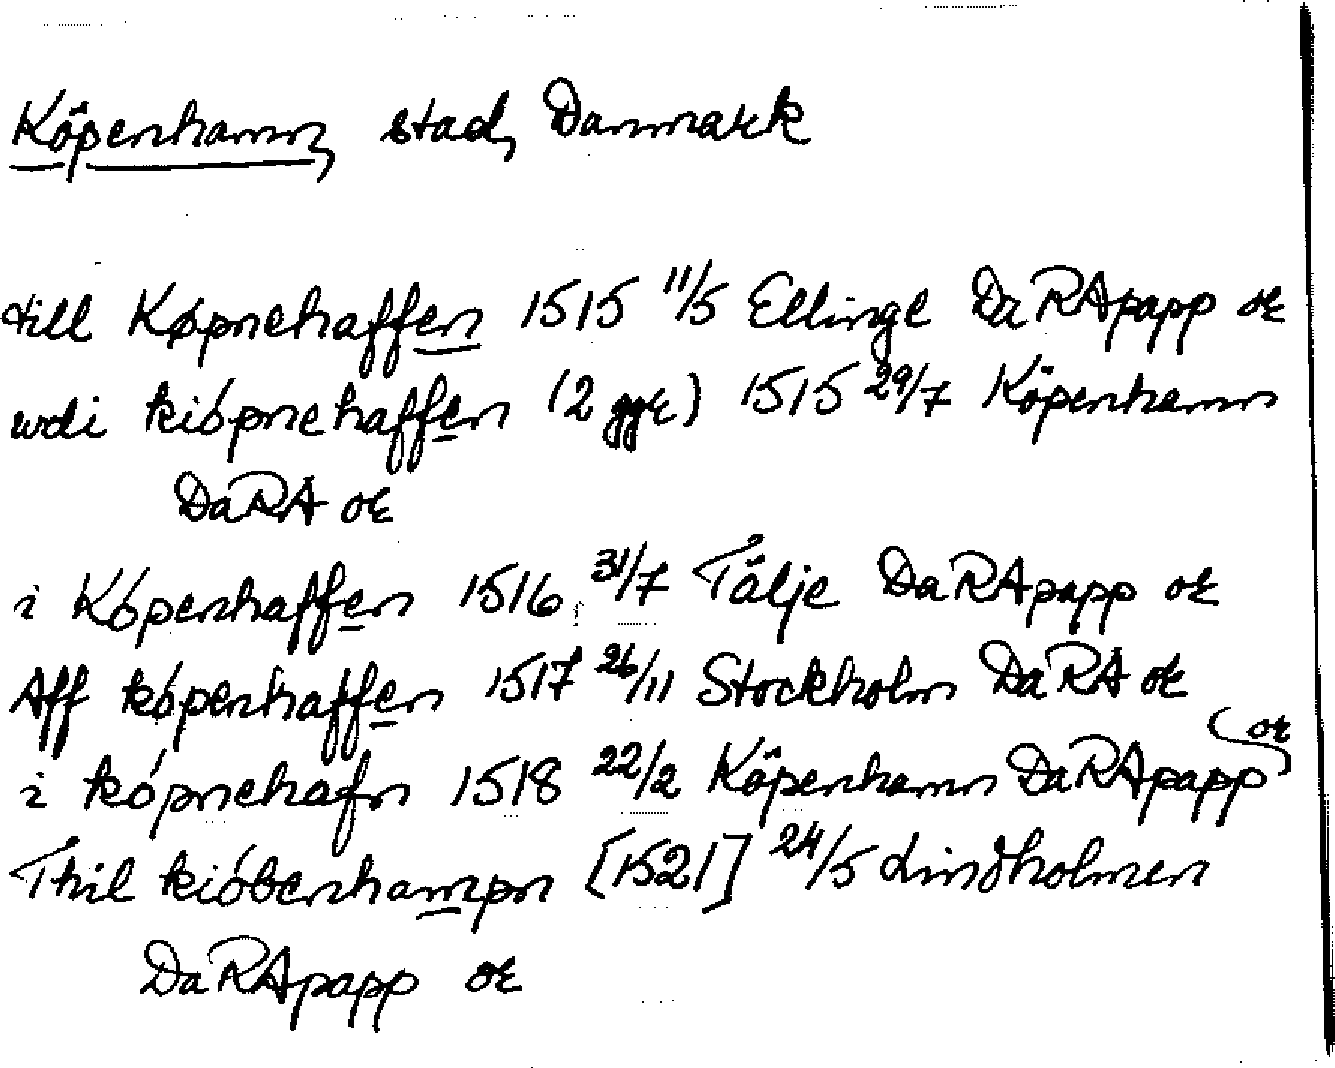 Köpenhamn, stad, Danmark
till Køpnehaffen 1515 11/5 Ellinge DaRApapp or
wdi kiópnehaffen (2 ggr) 1515 29/7 Köpenhamn
DaRA or
i Kópenhaffen 1516 31/7 Tälje DaRApapp or
Aff kópenhaffen 1517 26/11 Stockholm DaRA or
i kópnehafn 1518 22/2 Köpenhamn DaRApapp or
Thil kióbenhampn [1521] 24/5 Lindholmen
DaRApapp or